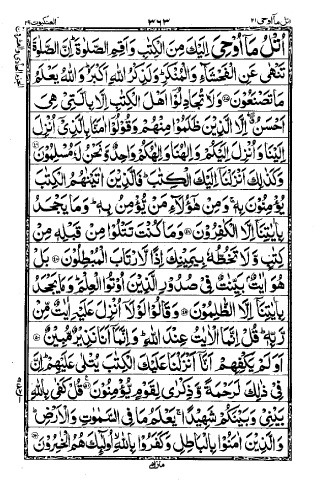 اتل ما اوحی ٢١ ٣٦٣ العنكبوت ٢٩
اُتْلُ مَاۤ اُوْحِیَ اِلَیْكَ مِنَ الْكِتٰبِ وَاَقِمِ الصَّلٰوةَ ؕ اِنَّ الصَّلٰوةَ
تَنْهٰی عَنِ الْفَحْشَآءِ وَالْمُنْكَرِ ؕ وَلَذِكْرُ اللّٰهِ اَكْبَرُ ؕ وَاللّٰهُ یَعْلَمُ
مَا تَصْنَعُوْنَ ۝ وَلَا تُجَادِلُوْۤا اَهْلَ الْكِتٰبِ اِلَّا بِالَّتِیْ هِیَ
اَحْسَنُ ۖ اِلَّا الَّذِیْنَ ظَلَمُوْا مِنْهُمْ وَقُوْلُوْۤا اٰمَنَّا بِالَّذِیْۤ اُنْزِلَ
اِلَیْنَا وَاُنْزِلَ اِلَیْكُمْ وَاِلٰهُنَا وَاِلٰهُكُمْ وَاحِدٌ وَّنَحْنُ لَهٗ مُسْلِمُوْنَ ۝
وَكَذٰلِكَ اَنْزَلْنَاۤ اِلَیْكَ الْكِتٰبَ ؕ فَالَّذِیْنَ اٰتَیْنٰهُمُ الْكِتٰبَ
یُؤْمِنُوْنَ بِهٖ ۚ وَمِنْ هٰۤؤُلَآءِ مَنْ یُّؤْمِنُ بِهٖ ؕ وَمَا یَجْحَدُ
بِاٰیٰتِنَاۤ اِلَّا الْكٰفِرُوْنَ ۝ وَمَا كُنْتَ تَتْلُوْا مِنْ قَبْلِهٖ مِنْ
كِتٰبٍ وَّلَا تَخُطُّهٗ بِیَمِیْنِكَ اِذًا لَّارْتَابَ الْمُبْطِلُوْنَ ۝ بَلْ
هُوَ اٰیٰتٌۢ بَیِّنٰتٌ فِیْ صُدُوْرِ الَّذِیْنَ اُوْتُوا الْعِلْمَ ؕ وَمَا یَجْحَدُ
بِاٰیٰتِنَاۤ اِلَّا الظّٰلِمُوْنَ ۝ وَقَالُوْا لَوْلَاۤ اُنْزِلَ عَلَیْهِ اٰیٰتٌ مِّنْ
رَّبِّهٖ ؕ قُلْ اِنَّمَا الْاٰیٰتُ عِنْدَ اللّٰهِ ؕ وَاِنَّمَاۤ اَنَا نَذِیْرٌ مُّبِیْنٌ ۝
اَوَلَمْ یَكْفِهِمْ اَنَّاۤ اَنْزَلْنَا عَلَیْكَ الْكِتٰبَ یُتْلٰی عَلَیْهِمْ ؕ اِنَّ
فِیْ ذٰلِكَ لَرَحْمَةً وَّذِكْرٰی لِقَوْمٍ یُّؤْمِنُوْنَ ۝ قُلْ كَفٰی بِاللّٰهِ
بَیْنِیْ وَبَیْنَكُمْ شَهِیْدًا ۚ یَعْلَمُ مَا فِی السَّمٰوٰتِ وَالْاَرْضِ ؕ
وَالَّذِیْنَ اٰمَنُوْا بِالْبَاطِلِ وَكَفَرُوْا بِاللّٰهِ ۙ اُولٰٓئِكَ هُمُ الْخٰسِرُوْنَ ۝